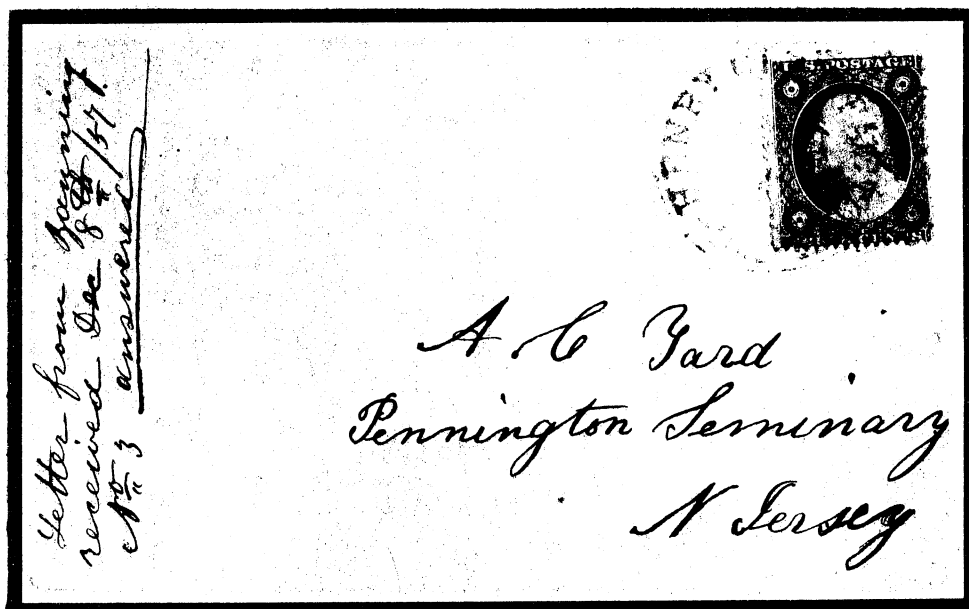 Letter from
received Dec 8th /57.
No 3 answered
U.S. POSTAGE
A. C Yard
Pennington Seminary
N Jersey